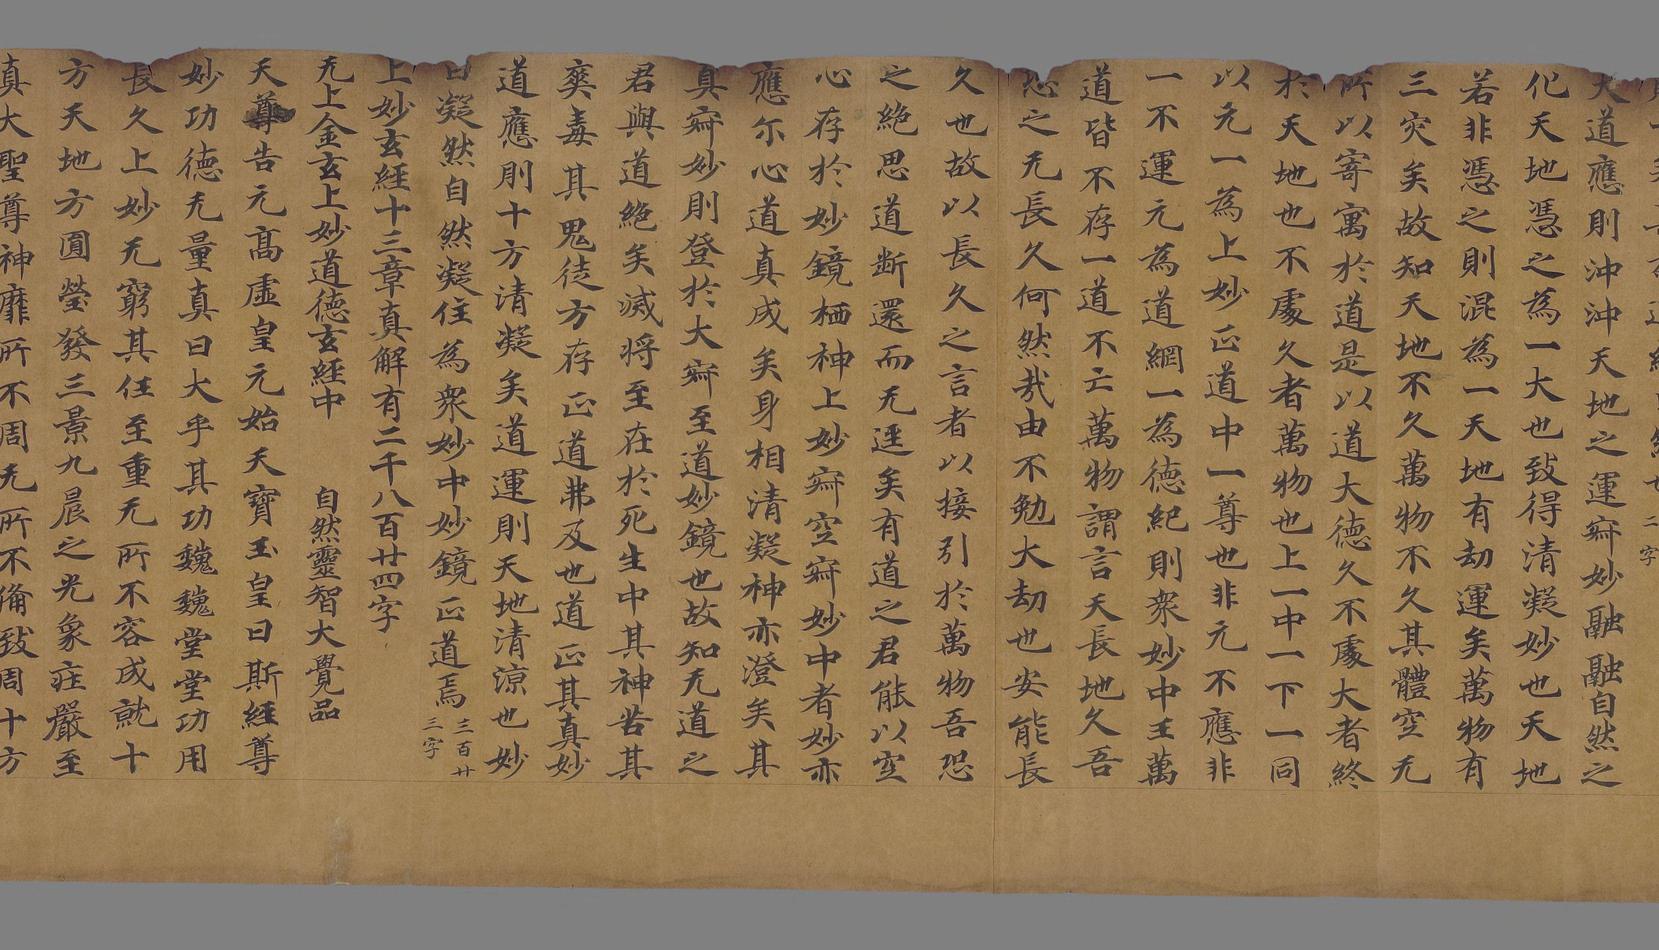 大道應則沖沖天地之運寂妙融融自然之
化天地憑之為一大也致得清凝妙也天地
若非憑之則混為一天地有劫運矣萬物有
三灾矣故知天地不久萬物不久其體空无
所以寄寓於道是以道大德久不處大者終
於天地也不處久者萬物也上一中一下一同
以元一為上妙正道中一尊也非元不應非
一不運元為道綱一為德紀則衆妙中王萬
道皆不存一道不亡萬物謂言天長地久吾
恐之无長久何然哉由不勉大劫也安能長
久也故以長久之言者以接引於萬物吾恐
之絶思道断還而无遥矣有道之君能以空
心存於妙鏡栖神上妙寂空寂妙中者妙亦
應尒心道真成矣身相清凝神亦澄矣其
真寂妙則登於大寂至道妙鏡也故知无道之
君與道絶矣滅将至在於死生中其神苦其
爽毒其鬼徒方存正道弗及也道正其真妙
道應則十方清凝矣道運則天地清涼也妙
曰凝然自然凝住為衆妙中妙鏡正道焉三百廿三字
上妙玄經十三章真解有二千八百廿四字
无上金玄上妙道德玄經中 自然靈智大覺品
天尊告元髙虛皇元始天寶玉皇曰斯經尊
妙功德无量真曰大乎其功魏魏堂堂功用
長久上妙无窮其住至重无所不容成就十
方天地方圓瑩發三景九晨之光象莊嚴至
真大聖尊神靡所不周无所不備致周十方